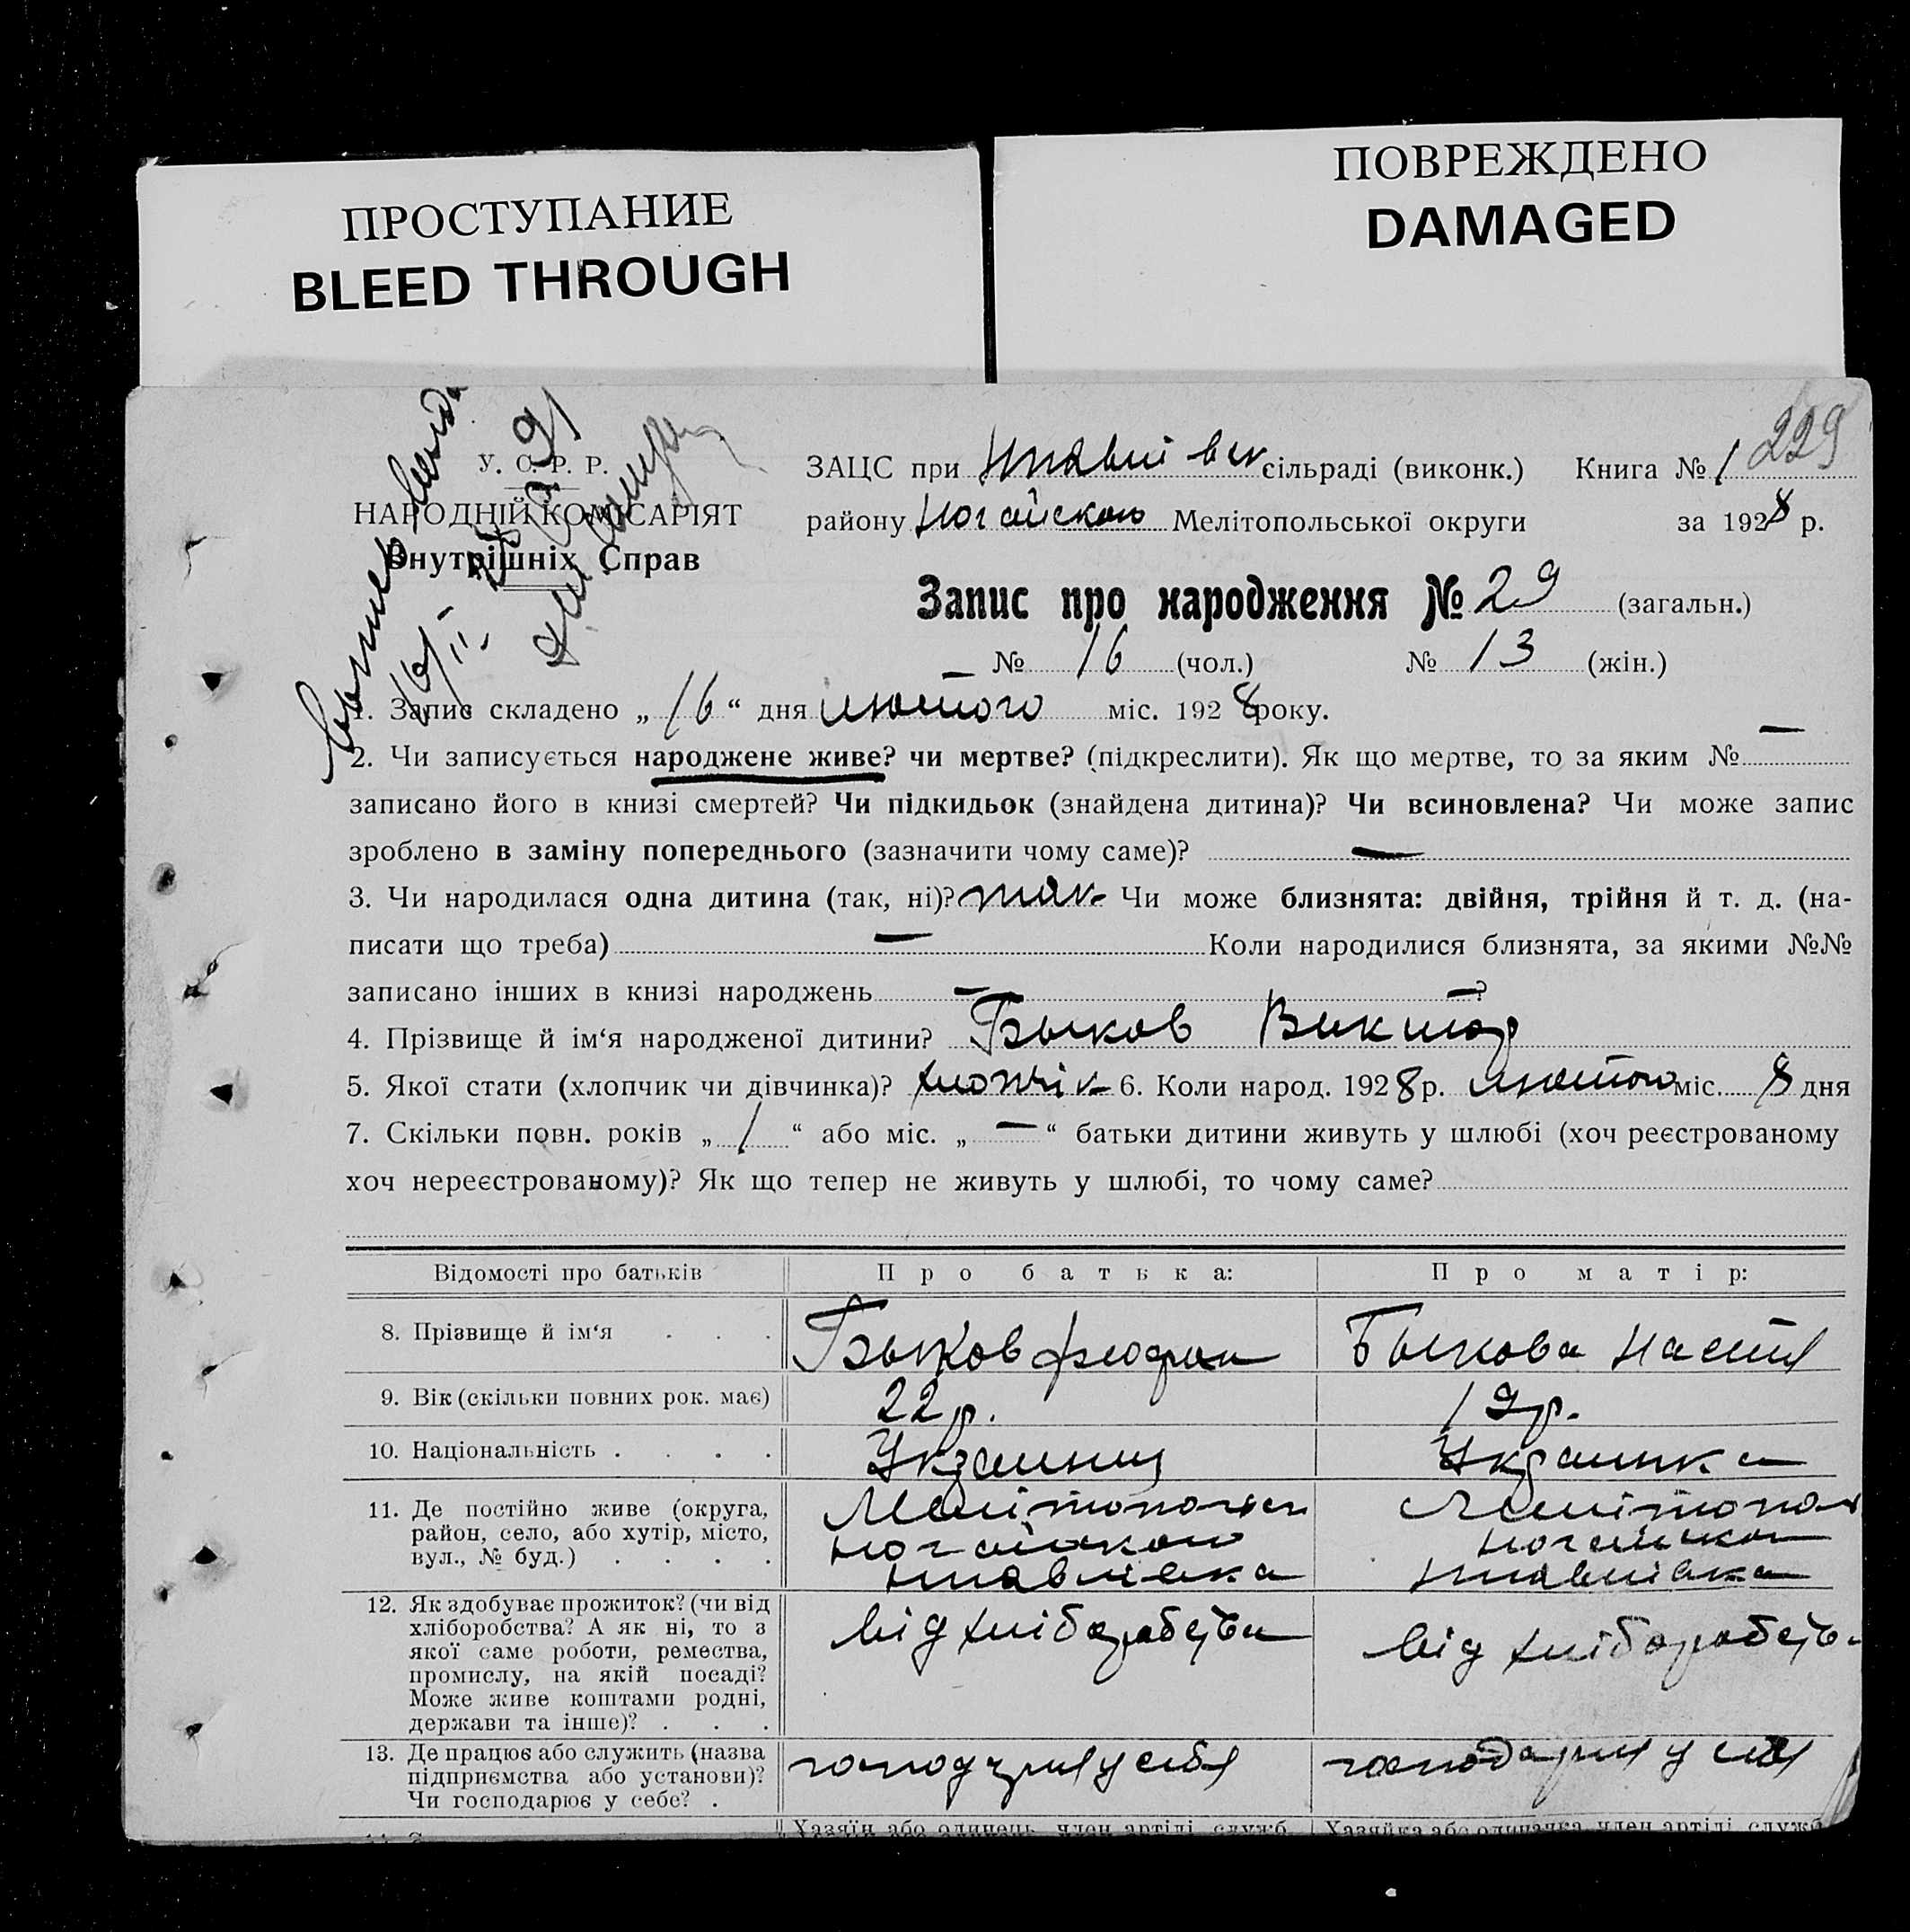 ПРОСТУПАНИЕ
BLEED THROUGH
ПОВРЕЖДЕНО
DAMAGED
229
У. С. Р. Р.
НАРОДНІЙ КОМІСАРІЯТ
Внутрішніх Справ
ЗАЦС при сільраді (виконк.) Книга № 1
району Ногайского Мелітопольської округи за 1928 р.
Запис про народження № 29 (загальн.)
№ 16 (чол.) № 13 (жін.)
1. Запис складено „ 16 “ дня лютого міс. 1928 року.
2. Чи записується народжене живе? чи мертве? (підкреслити). Як що мертве, то за яким № —
записано його в книзі смертей? Чи підкидьок (знайдена дитина)? Чи всиновлена? Чи може запис
зроблено в заміну попереднього (зазначити чому саме)? —
3. Чи народилася одна дитина (так, ні)? так Чи може близнята: двійня, трійня й т. д. (на-
писати що треба) — Коли народилися близнята, за якими №№
записано інших в книзі народжень — — ?
4. Прізвище й ім‘я народженої дитини? Быков Виктор
5. Якої стати (хлопчик чи дівчинка)? хлопчік 6. Коли народ. 1928 р. лютого міс. 8 дня
7. Скільки повн. років „ 1 “ або міс. „ — “ батьки дитини живуть у шлюбі (хоч реєстрованому
хоч нереєстрованому)? Як що тепер не живуть у шлюбі, то чому саме?
Відомості про батьків Про батька: Про матір:
8. Прізвище й ім‘я Быков Быкова Настя
9. Вік (скільки повних рок. має) 22 р. 19 р.
10. Національність Украинец Украинка
11. Де постійно живе (округа,
район, село, або хутір, місто,
вул., № буд.)
12. Як здобуває прожиток? (чи від
хліборобства? А як ні, то з
якої саме роботи, ремества,
промислу, на якій посаді?
Може живе коштами родні,
держави та інше)?
від хліборобства від хліборобства
13. Де працює або служить (назва
підприємства або установи)?
Чи господарює у себе?
Хазяїн або одинець, член артілі, служб. Хазяйка або одиначка, член артілі, служб